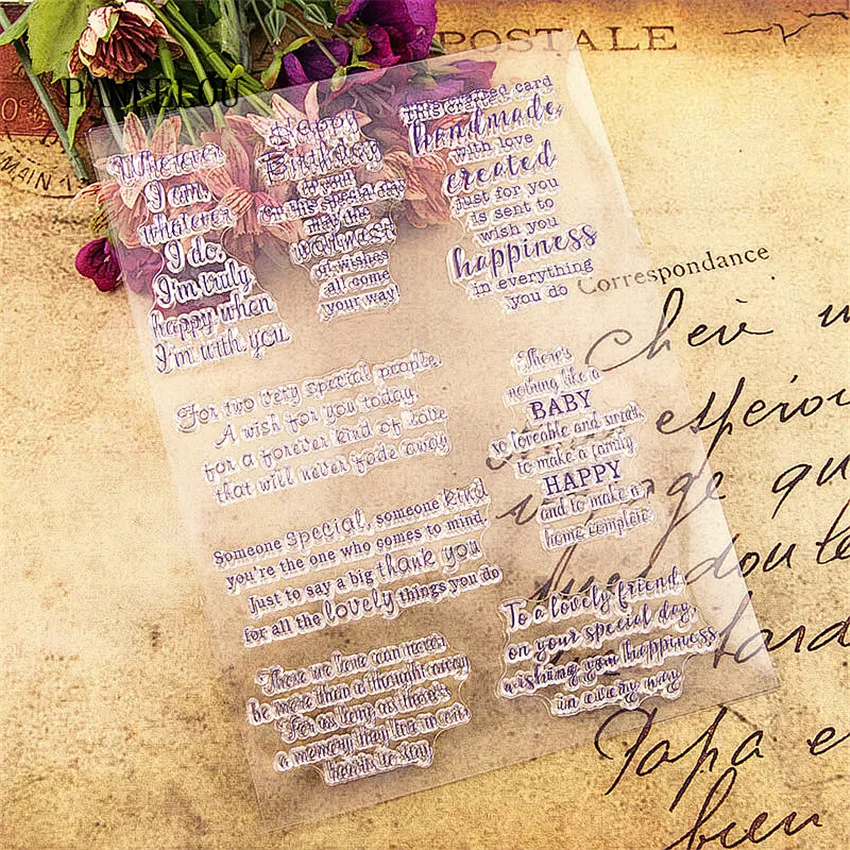 POSTALE
PANFELOU
MAIN 13
Wherever
I am,
whatever
I do,
I'm truly
happy when
I'm with you
Happy
Birthday
to you!
On this special day
may the
warmest
of wishes
all come
your way!
This crafted card
handmade,
with love
created
just for you
is sent to
wish you
happiness
in everything
you do
Correspondance
For two very special people,
A wish for you today,
for a forever kind of love
that will never fade away
There's
nothing like a
BABY
so loveable and small,
to make a family
HAPPY
and to make a
home complete.
Someone special, someone kind
you're the one who comes to mind.
Just to say a big thank you
for all the lovely things you do
Those we love can never
be more than a thought away
For as long as there's
a memory they live in our
hearts to stay
To a lovely friend,
on your special day,
wishing you happiness
in every way
Chère
doute
tard
Papa
bien